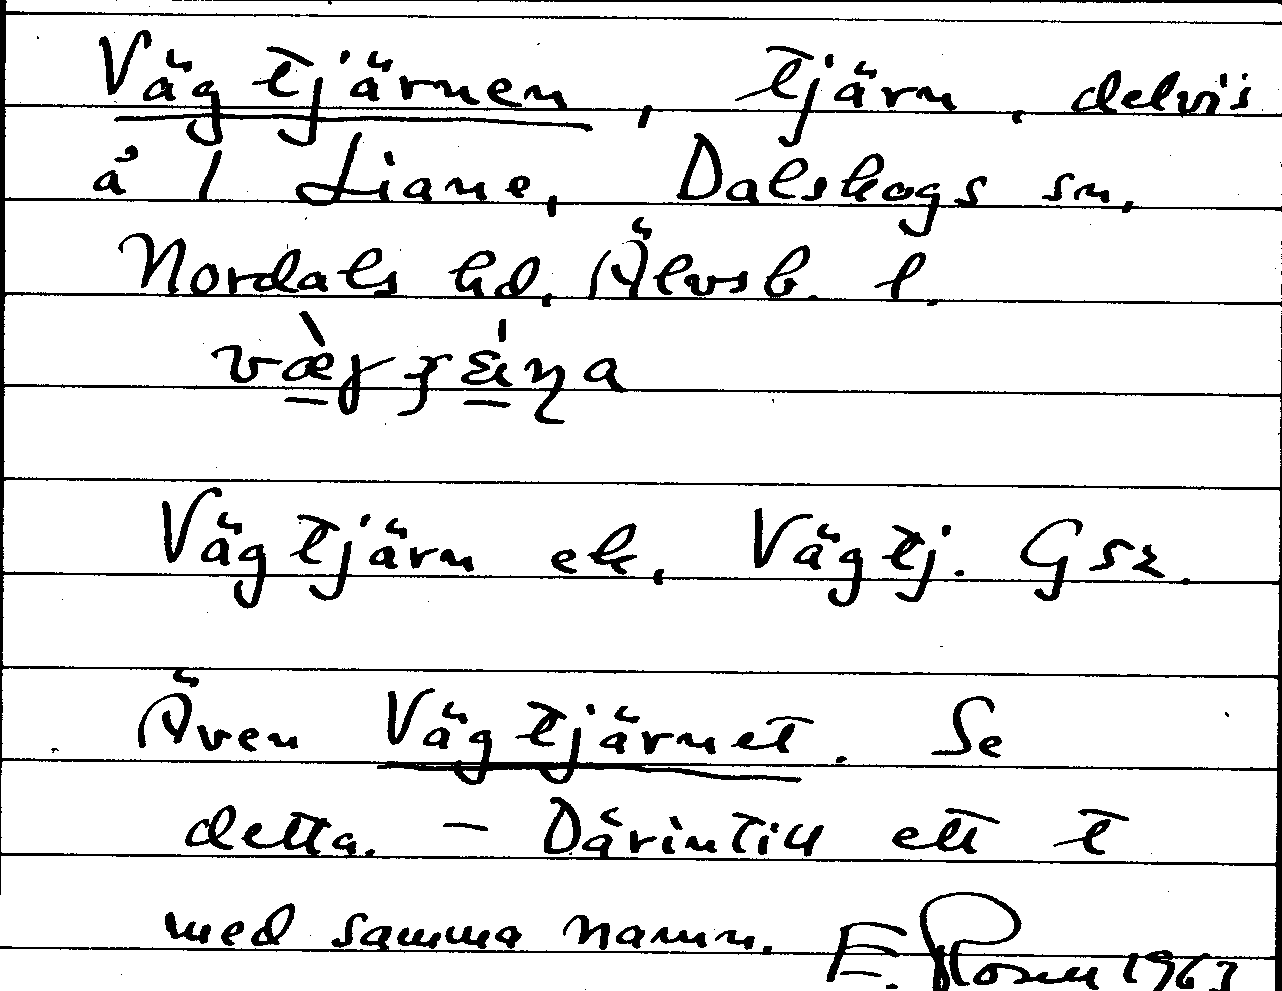 Vägtjärnen, tjärn, delvis
å 1 Liane, Dalskogs sn,
Nordals hd, Älvsb. l.
Vägtjärn ek, Vägtj. Gsz.
Även Vägtjärnet. Se
detta. – Därintill ett t
med samma namn. E. Rosell 1963